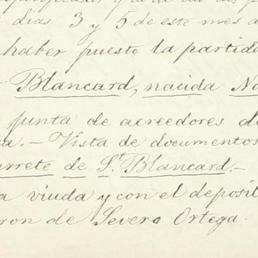 dias 3 y 5 de este mes a
haber puesto la partida
Blancard, nacida No
junta de acreedores d
a. - Vista de documentos
arrete de St. Blancard. -
a viuda y con el deposi
ron de Severo Ortega.